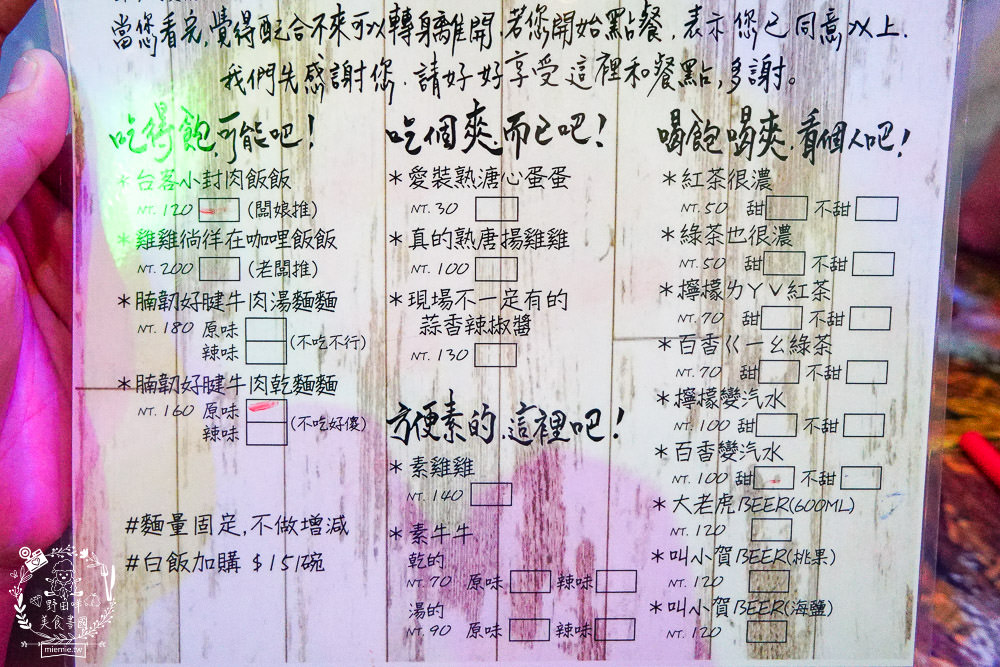 當您看完,覺得配合不來可以轉身離開.若您開始點餐,表示您已同意以上.
我們先感謝您.請好好享受這裡和餐點,多謝。
吃得飽,可能吧!
*台客小封肉飯飯
NT.120 (闆娘推)
*雞雞徜徉在咖哩飯飯
NT.200 (老闆推)
*腩韌好腱牛肉湯麵麵
NT.180 原味
辣味 (不吃不行)
*腩韌好腱牛肉乾麵麵
NT.160 原味
辣味 (不吃好傻)
#麵量固定,不做增減
#白飯加購 $15/碗
吃個爽而已吧!
*愛裝熟溏心蛋蛋
NT.30
*真的熟唐揚雞雞
NT.100
*現場不一定有的
蒜香辣椒醬
NT.130
方便素的.這裡吧!
*素雞雞
NT.140
*素牛牛
乾的
NT.70 原味 辣味
湯的
NT.90 原味 辣味
喝飽喝爽.看個人吧!
*紅茶很濃
NT.50 甜 不甜
*綠茶也很濃
NT.50 甜 不甜
*檸檬ㄌㄚˇ紅茶
NT.70 甜 不甜
*百香ㄍㄧㄠ綠茶
NT.70 甜 不甜
*檸檬變汽水
NT.100 甜 不甜
*百香變汽水
NT.100 甜 不甜
*大老虎BEER(600ML)
NT.120
*叫小賀BEER(桃果)
NT.120
*叫小賀BEER(海鹽)
NT.120
野田咩
美食書園
miemie.tw